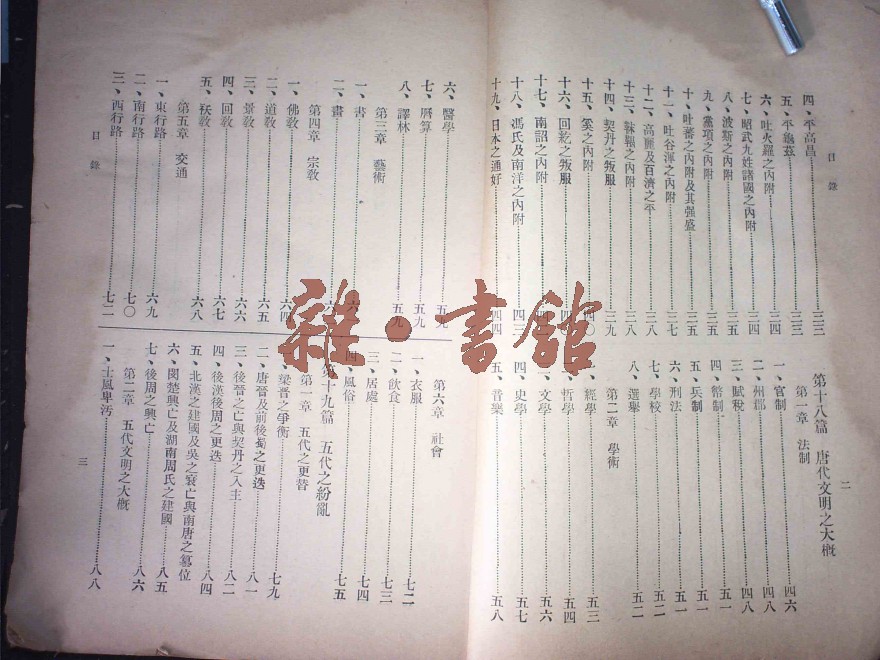 目錄
二
四、平高昌……三三
五、平龜茲……三三
六、吐火羅之內附……三四
七、昭武九姓諸國之內附……三四
八、波斯之內附……三五
九、黨項之內附……三五
十、吐蕃之內附及其强盛……三五
十一、吐谷渾之內附……三七
十二、高麗及百濟之平……三八
十三、靺鞨之內附……三八
十四、契丹之叛服……三九
十五、奚之內附……四〇
十六、回紇之叛服……四
十七、南詔之內附……四
十八、馮氏及南洋之內附……四三
十九、日本之通好……四四
第十八篇 唐代文明之大概
第一章 法制
一、官制……四六
二、州郡……四八
三、賦稅……四八
四、幣制……五一
五、兵制……五一
六、刑法……五一
七、學校……五一
八、選舉……五二
第二章 學術
一、經學……五三
二、哲學……五四
三、文學……五六
四、史學……五七
五、音樂……五八
六、醫學……五九
七、曆算……五九
八、譯林……五九
第三章 藝術
一、書……六
二、畫……六
第四章 宗敎
一、佛敎……六四
二、道敎……六五
三、景敎……六六
四、回敎……六七
五、祆敎……六八
第五章 交通
一、東行路……六九
二、南行路……七〇
三、西行路……七二
第六章 社會
一、衣服……七二
二、飲食……七三
三、居處……七四
四、風俗……七五
第十九篇 五代之紛亂
第一章 五代之更替
一、梁晉之爭衡……七九
二、唐晉及前後蜀之更迭……八一
三、後晉之亡與契丹之入主……八二
四、後漢後周之更迭……八二
五、北漢之建國及吳之衰亡與南唐之篡位……八四
六、閩楚興亡及湖南周氏之建國……八五
七、後周之興亡……八六
第二章 五代文明之大概
一、士風卑汚……八八
目錄
三
雜·書館